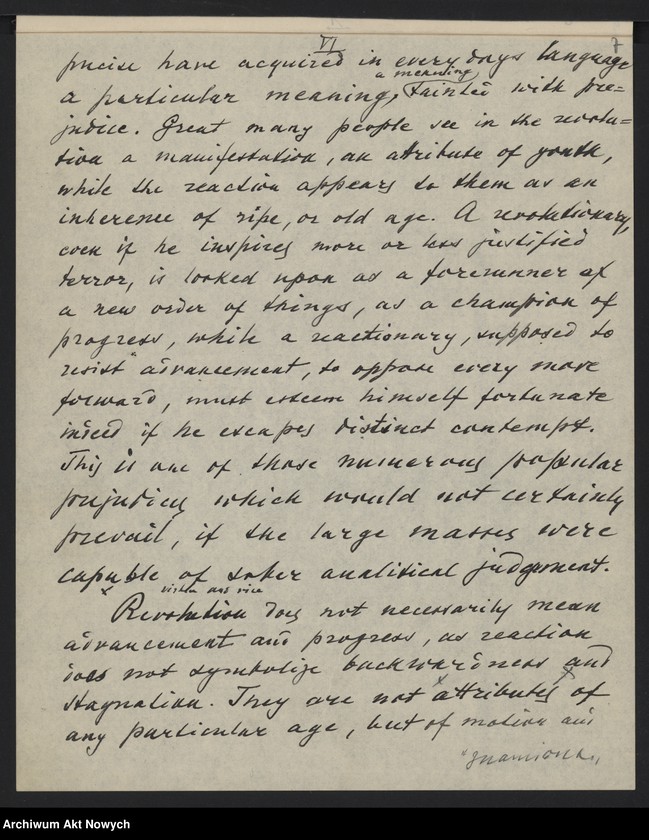 VI
7
precise have acquired in every days language
a meaning,
a particular meaning, tainted with pre=
judice. Great many people see in the revolu=
tion a manifestation, an atribute of youth,
while the reaction appears to them as an
inherence of ripe, or old age. A revolutionary,
even if he inspires more or less justified
terror, is looked upon as a forerunner of
a new order of things, as a champion of
progress, while a reactionary, supposed to
resist advancement, to oppose every move
forward, must esteem himself fortunate
indeed if he escapes distinct contempt.
This is one of those numerous popular
prejudices which would not certainly
prevail, if the large masses were
capable of sober analitical judgement.
Revolution does not necessarily mean
advancement and progress, as reaction
does not symbolize backwardness and
stagnation. They are not attributes of
any particular age, but of motion and
Archiwum Akt Nowych